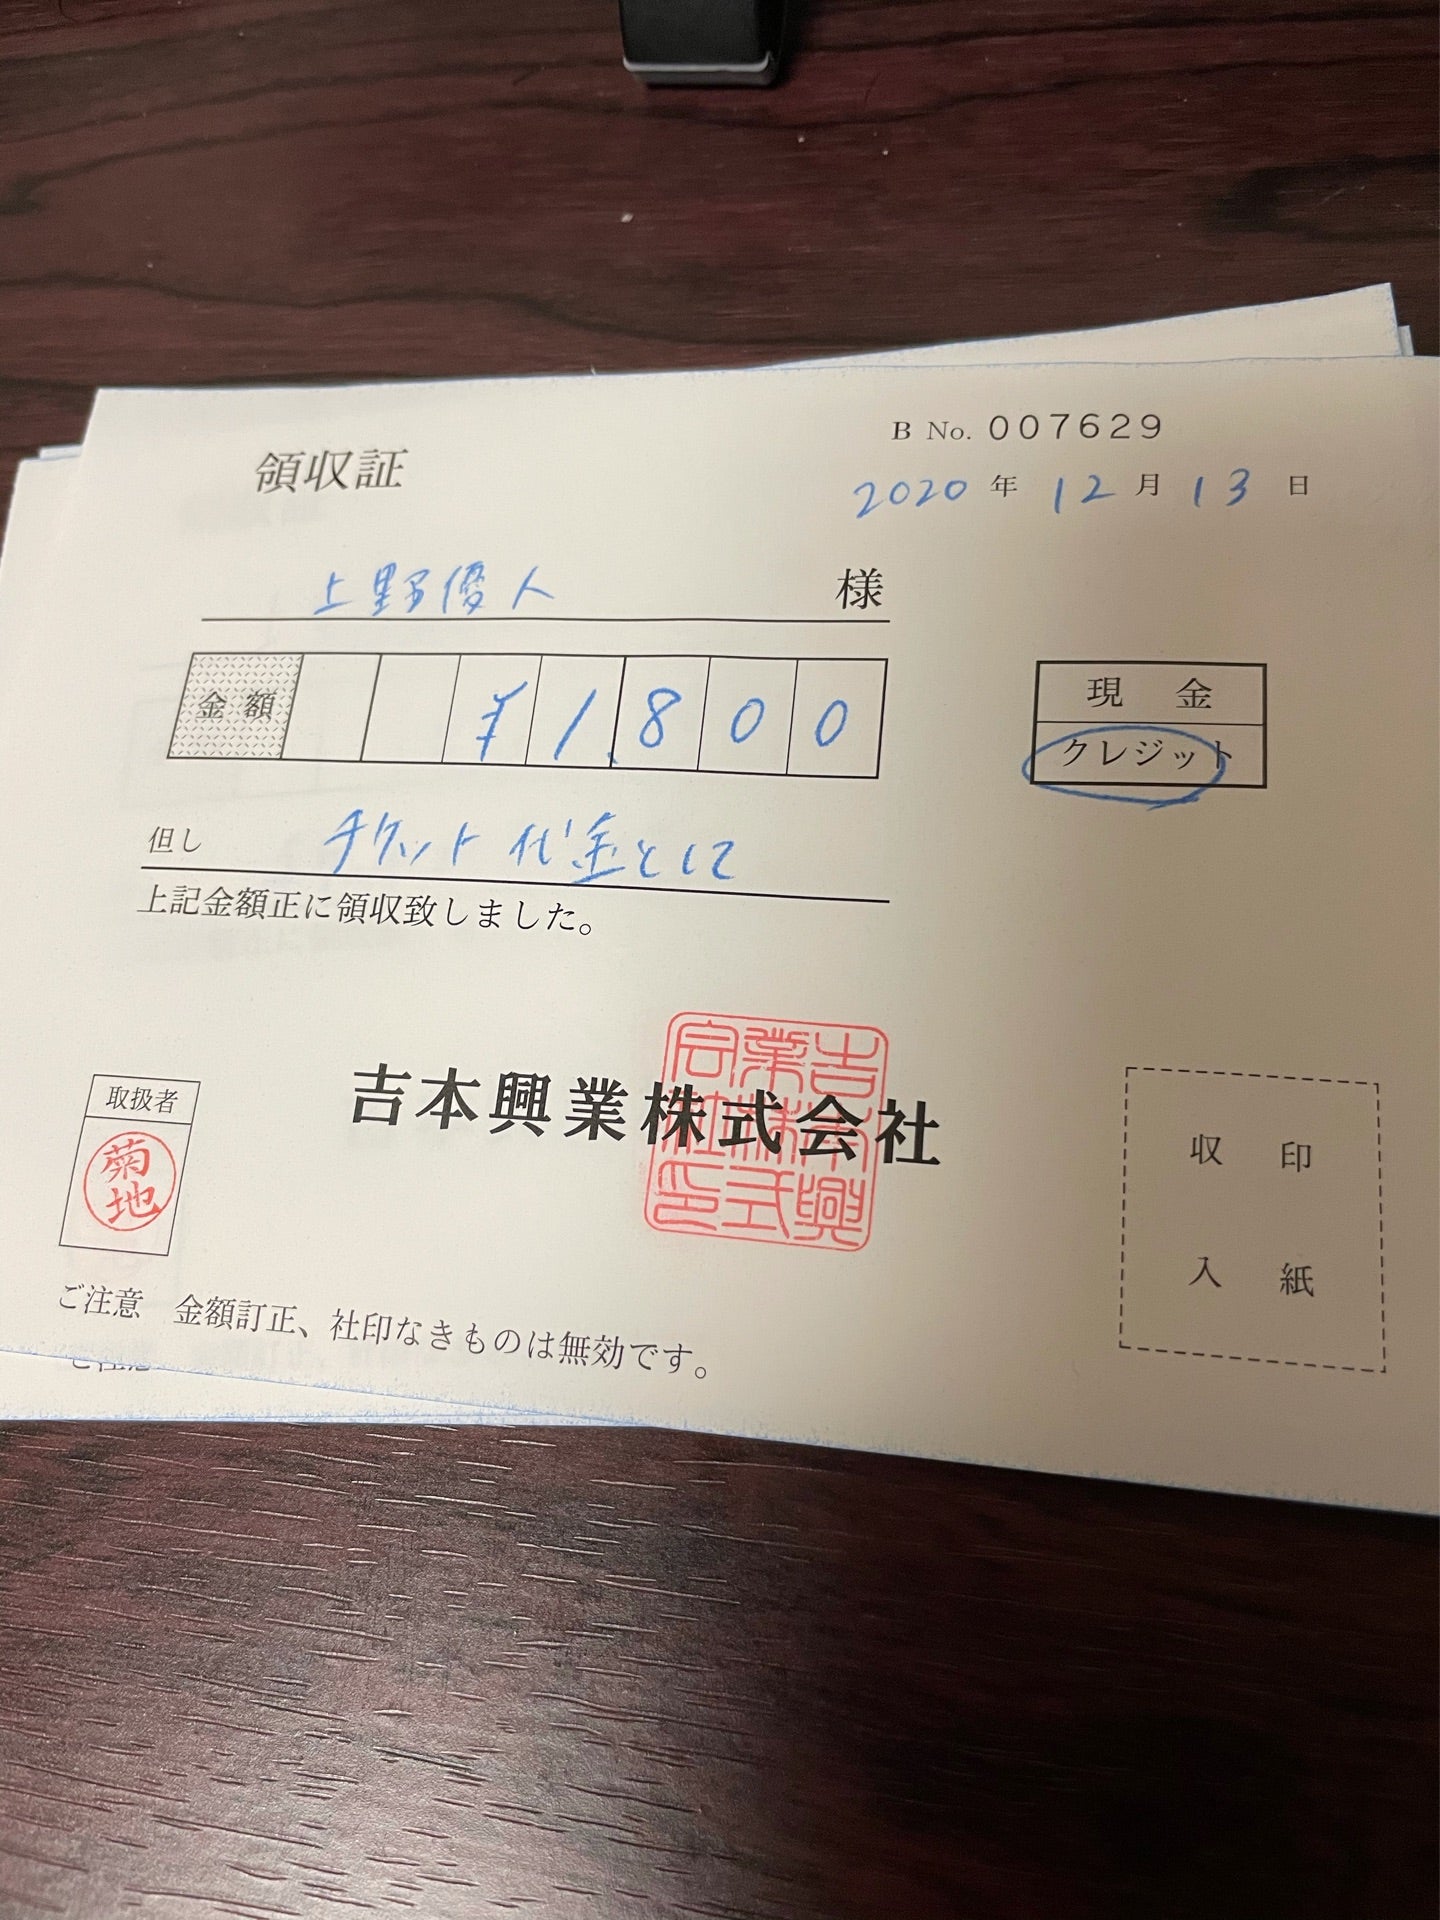 領収証
B No. 007629
2020 年 12 月 13 日
上野優人 様
金額 ¥1,800
現金
クレジット
但し チケット代金として
上記金額正に領収致しました。
吉本興業株式会社
吉本興業株式会社印
取扱者
菊地
収印
入紙
ご注意 金額訂正、社印なきものは無効です。
ご注意